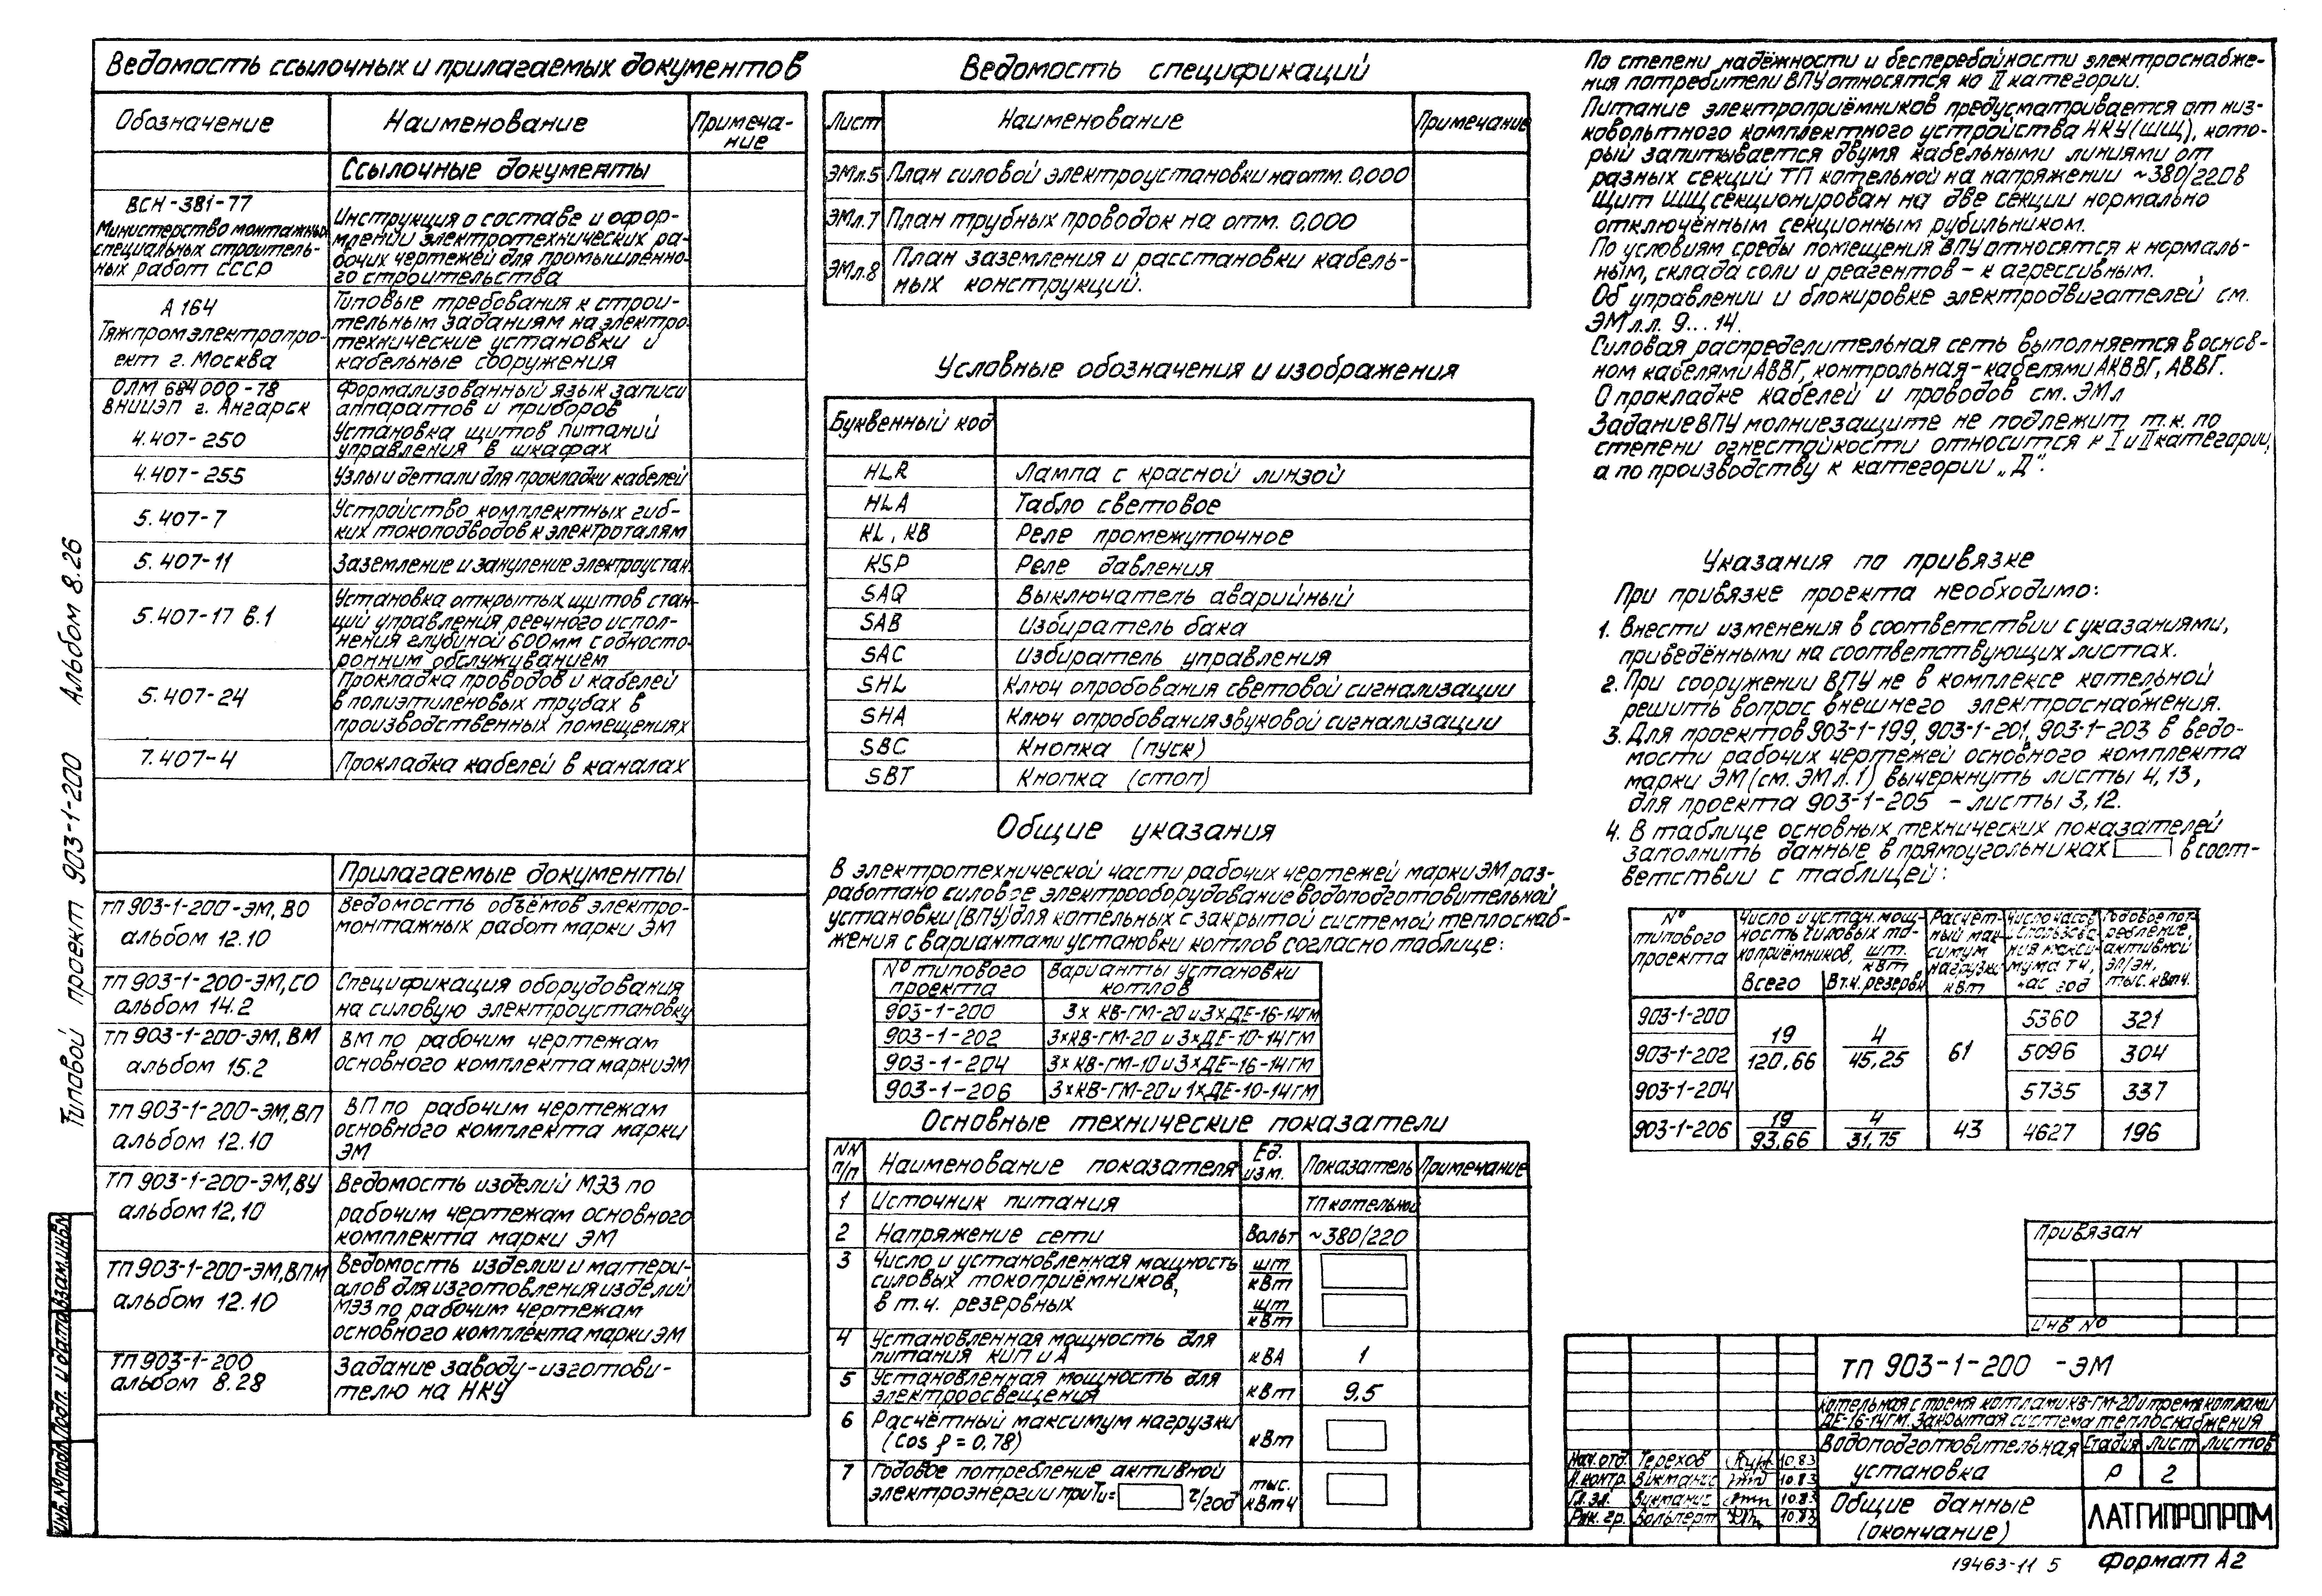 Типовой проект 903-1-200 Альбом 8.26
Ведомость ссылочных и прилагаемых документов
Обозначение
Наименование
Примеча-
ние
Ссылочные документы
ВСН-381-77
Министерство монтажных
специальных строитель-
ных работ СССР
Инструкция о составе и офор-
млении электротехнических ра-
бочих чертежей для промышленно-
го строительства
А 164
Тяжпромэлектропро-
ект г. Москва
Типовые требования к строи-
тельным заданиям на электро-
технические установки и
кабельные сооружения
ОЛМ 684 000-78
ВНИИЭП г. Ангарск
Формализованный язык записи
аппаратов и приборов
4.407-250
Установка щитов питаний
управления в шкафах
4.407-255
Узлы и детали для прокладки кабелей
5.407-7
Устройство комплектных гиб-
ких токоподводов к электроталям
5.407-11
Заземление и зануление электроустан.
5.407-17 в.1
Установка открытых щитов стан-
ций управления реечного испол-
нения глубиной 600мм с односто-
ронним обслуживанием
5.407-24
Прокладка проводов и кабелей
в полиэтиленовых трубах в
производственных помещениях
7.407-4
Прокладка кабелей в каналах
Прилагаемые документы
ТП 903-1-200-ЭМ, ВО
альбом 12.10
Ведомость объёмов электро-
монтажных работ марки ЭМ
ТП 903-1-200-ЭМ, СО
альбом 14.2
Спецификация оборудования
на силовую электроустановку
ТП 903-1-200-ЭМ, ВМ
альбом 15.2
ВМ по рабочим чертежам
основного комплекта марки ЭМ
ТП 903-1-200-ЭМ, ВП
альбом 12.10
ВП по рабочим чертежам
основного комплекта марки
ЭМ
ТП 903-1-200-ЭМ, ВУ
альбом 12.10
Ведомость изделий МЭЗ по
рабочим чертежам основного
комплекта марки ЭМ
ТП 903-1-200-ЭМ, ВПМ
альбом 12.10
Ведомость изделий и матери-
алов для изготовления изделий
МЭЗ по рабочим чертежам
основного комплекта марки ЭМ
ТП 903-1-200
альбом 8.28
Задание заводу-изготови-
телю на НКУ
Инв.№подл. Подп. и дата Взам.инв.№
Ведомость спецификаций
Лист
Наименование
Примечание
ЭМл.5
План силовой электроустановки на отм. 0,000
ЭМл.7
План трубных проводок на отм. 0,000
ЭМл.8
План заземления и расстановки кабель-
ных конструкций.
Условные обозначения и изображения
Буквенный код
HLR Лампа с красной линзой
HLA Табло световое
KL, KB Реле промежуточное
KSP Реле давления
SAQ Выключатель аварийный
SAB Избиратель бака
SAC Избиратель управления
SHL Ключ опробования световой сигнализации
SHA Ключ опробования звуковой сигнализации
SBC Кнопка (пуск)
SBT Кнопка (стоп)
Общие указания
В электротехнической части рабочих чертежей марки ЭМ раз-
работано силовое электрооборудование водоподготовительной
установки (ВПУ) для котельных с закрытой системой теплоснаб-
жения с вариантами установки котлов согласно таблице:
№ типового
проекта
Варианты установки
котлов
903-1-200 3х КВ-ГМ-20 и 3хДЕ-16-14ГМ
903-1-202 3хКВ-ГМ-20 и 3хДЕ-10-14ГМ
903-1-204 3хКВ-ГМ-10 и 3хДЕ-16-14ГМ
903-1-206 3хКВ-ГМ-20 и 1хДЕ-10-14ГМ
Основные технические показатели
NN
п/п
Наименование показателя
Ед.
изм.
Показатель
Примечание
1 Источник питания ТП котельной
2 Напряжение сети Вольт ~380/220
3 Число и установленная мощность
силовых токоприёмников,
в т.ч. резервных
шт
кВт
шт
кВт
4 Установленная мощность для
питания КИП и А
кВА 1
5 Установленная мощность для
электроосвещения
кВт 9.5
6 Расчётный максимум нагрузки
(cos φ = 0,78)
кВт
7 Годовое потребление активной
электроэнергии при Ти= ч/год
тыс.
кВт ч
По степени надёжности и бесперебойности электроснабже-
ния потребители ВПУ относятся ко II категории.
Питание электроприёмников предусматривается от низ-
ковольтного комплектного устройства НКУ(ШЩ), кото-
рый запитывается двумя кабельными линиями от
разных секций ТП котельной на напряжении ~380/220в
Щит ШЩ секционирован на две секции нормально
отключённым секционным рубильником.
По условиям среды помещения ВПУ относятся к нормаль-
ным, склада соли и реагентов - к агрессивным.
Об управлении и блокировке электродвигателей см.
ЭМ л.л. 9...14.
Силовая распределительная сеть выполняется в основ-
ном кабелями АВВГ, контрольная-кабелями АКВВГ, АВВГ.
О прокладке кабелей и проводов см. ЭМл
Задание ВПУ молниезащите не подлежит т.к. по
степени огнестойкости относится к I и II категории,
а по производству к категории „Д".
Указания по привязке
При привязке проекта необходимо:
1. Внести изменения в соответствии с указаниями,
приведёнными на соответствующих листах.
2. При сооружении ВПУ не в комплексе котельной
решить вопрос внешнего электроснабжения.
3. Для проектов 903-1-199, 903-1-201, 903-1-203 в ведо-
мости рабочих чертежей основного комплекта
марки ЭМ (см. ЭМ л.1) вычеркнуть листы 4, 13,
для проекта 903-1-205 - листы 3, 12.
4. В таблице основных технических показателей
заполнить данные в прямоугольниках в соот-
ветствии с таблицей:
№
типового
проекта
Число и устан. мощ-
ность силовых то-
коприёмников, шт.
кВт
Всего
В т.ч. резервн
Расчёт-
ный мак-
симум
нагрузки
кВт
Число часов
использова-
ния макси-
мума Ти,
час год
Годовое пот-
ребление
активной
эл/эн,
тыс. кВтч.
903-1-200 5360 321
903-1-202 19/120,66 4/45,25 61 5096 304
903-1-204 5735 337
903-1-206 19/93,66 4/31,75 43 4627 196
Привязан
Инв №
ТП 903-1-200 -ЭМ
Котельная с тремя котлами КВ-ГМ-20 и тремя котлами
ДЕ-16-14ГМ. Закрытая система теплоснабжения
Водоподготовительная
установка
Стадия Лист Листов
Р 2
Общие данные
(окончание)
ЛАТГИПРОПРОМ
Нач.отд. Терехов 10.83
Н.контр. Викманис 10.83
Гл.эл. Викманис 10.83
Рук.гр. Вольперт 10.83
19463-11 5 Формат А2